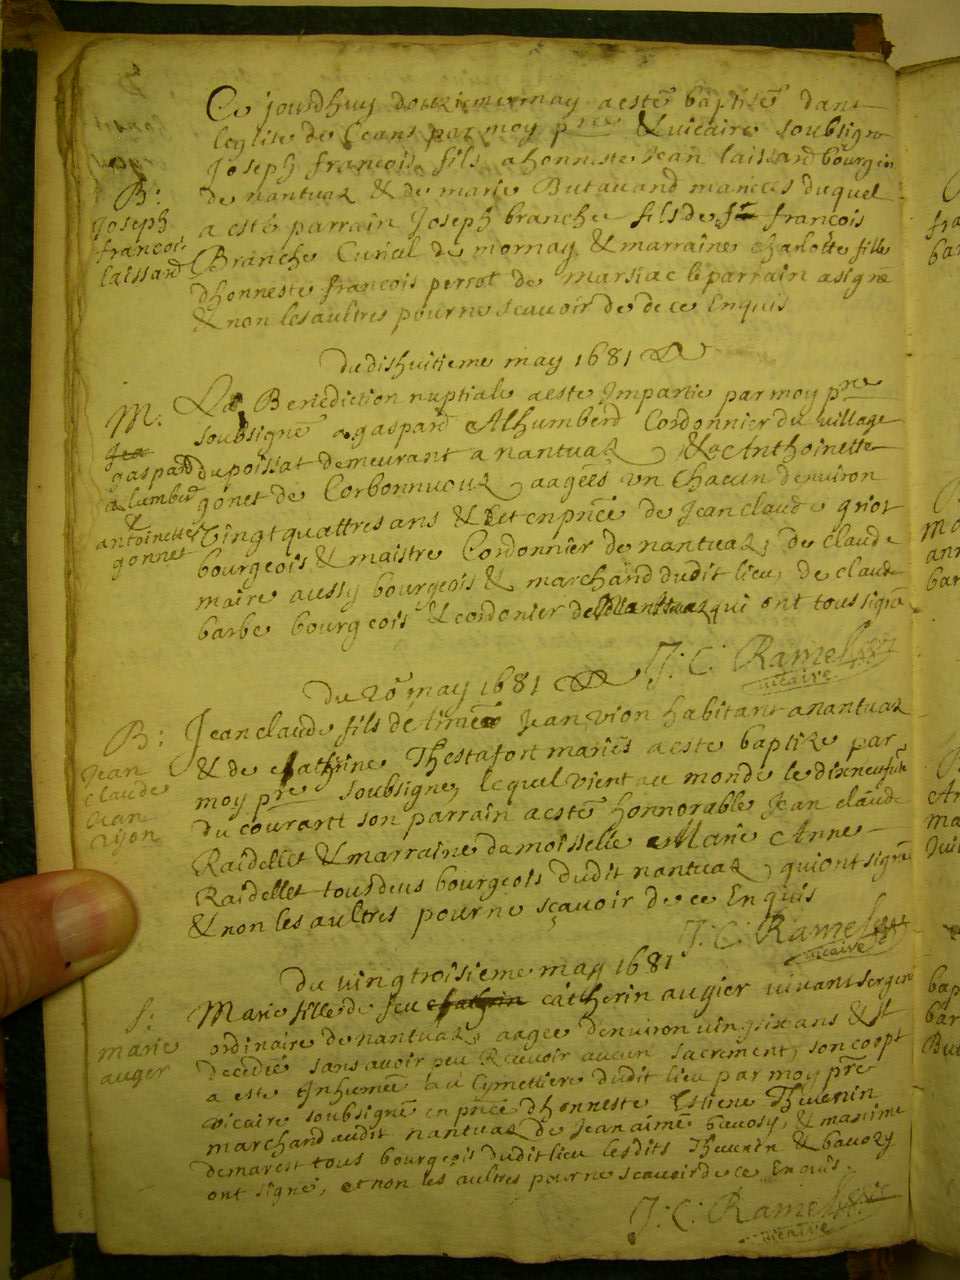 Ce jourdhuy douziememay a esté baptisé dans
leglise de Ceans par moy pre & vicaire soubsigne
Joseph francois fils a honneste Jean laissard bourgeois
de nantua & de marie Butavand mariés duquel
a esté parrain Joseph branche fils de francois
Branche Curial de mornay & marraine charlotte fille
dhonneste francois perrot de marsiac le parrain a signé
& non les aultres pour ne scavoir de de ce Enquis
B:
Joseph
francois
laissard
Du dishuitieme may 1681
La Benediction nuptiale a este Impartie par moy pre
soubsigné a gaspard Alhumberd Cordonnier du village
du poissat demeurant a nantua, & Anthoinette
gonet de Corbonnoux, aagées un Chacun denviron
vingt quattres ans & Cet en pnce de Jean claude griot
bourgeois & maistre Cordonnier de nantua, de claude
maire aussy bourgeois & marchand dudit lieu, de claude
barbe bourgeois & cordonier de nantua qui ont tous signé
M:
gaspard
alumberd
&
antoinette
gonnet
J: C: Ramel
vicaire
Du 20e may 1681
Jean claude fils de Jean vion habitant a nantua
& de Cathrine Thestafort mariés a este baptize par
moy pre soubsigne, lequel vient au monde le dixneufie
du courant son parrain a esté honnorable Jean claude
Raidellet & marraine damoiselle Marie Anne
Raidellet tous deus bourgeois dudit nantua, qui ont signé
& non les aultres pour ne sçavoir de ce Enquis
B:
Jean
claude
vion
J: C: Ramel
vicaire
Du vingtroisieme may 1681
Marie fille de feu catherin augier vivant sergent
ordinaire de nantua, aagee denviron vingsix ans & st
decedée sans avoir peu Recevoir aucun sacrement, son corps
a este Inhumée au Cymettiere dudit lieu par moy pre
vicaire soubsigné en pnce dhonneste Estiene Thevenin
marchand audit nantua de Jean aimé bavosy, & maxime
demarest tous bourgeois dudit lieu lesdits Thevenin & bavozy
ont signé, et non les aultres pour ne scavoir de ce Enquis.
f:
marie
auger
J: C: Ramel
vicaire